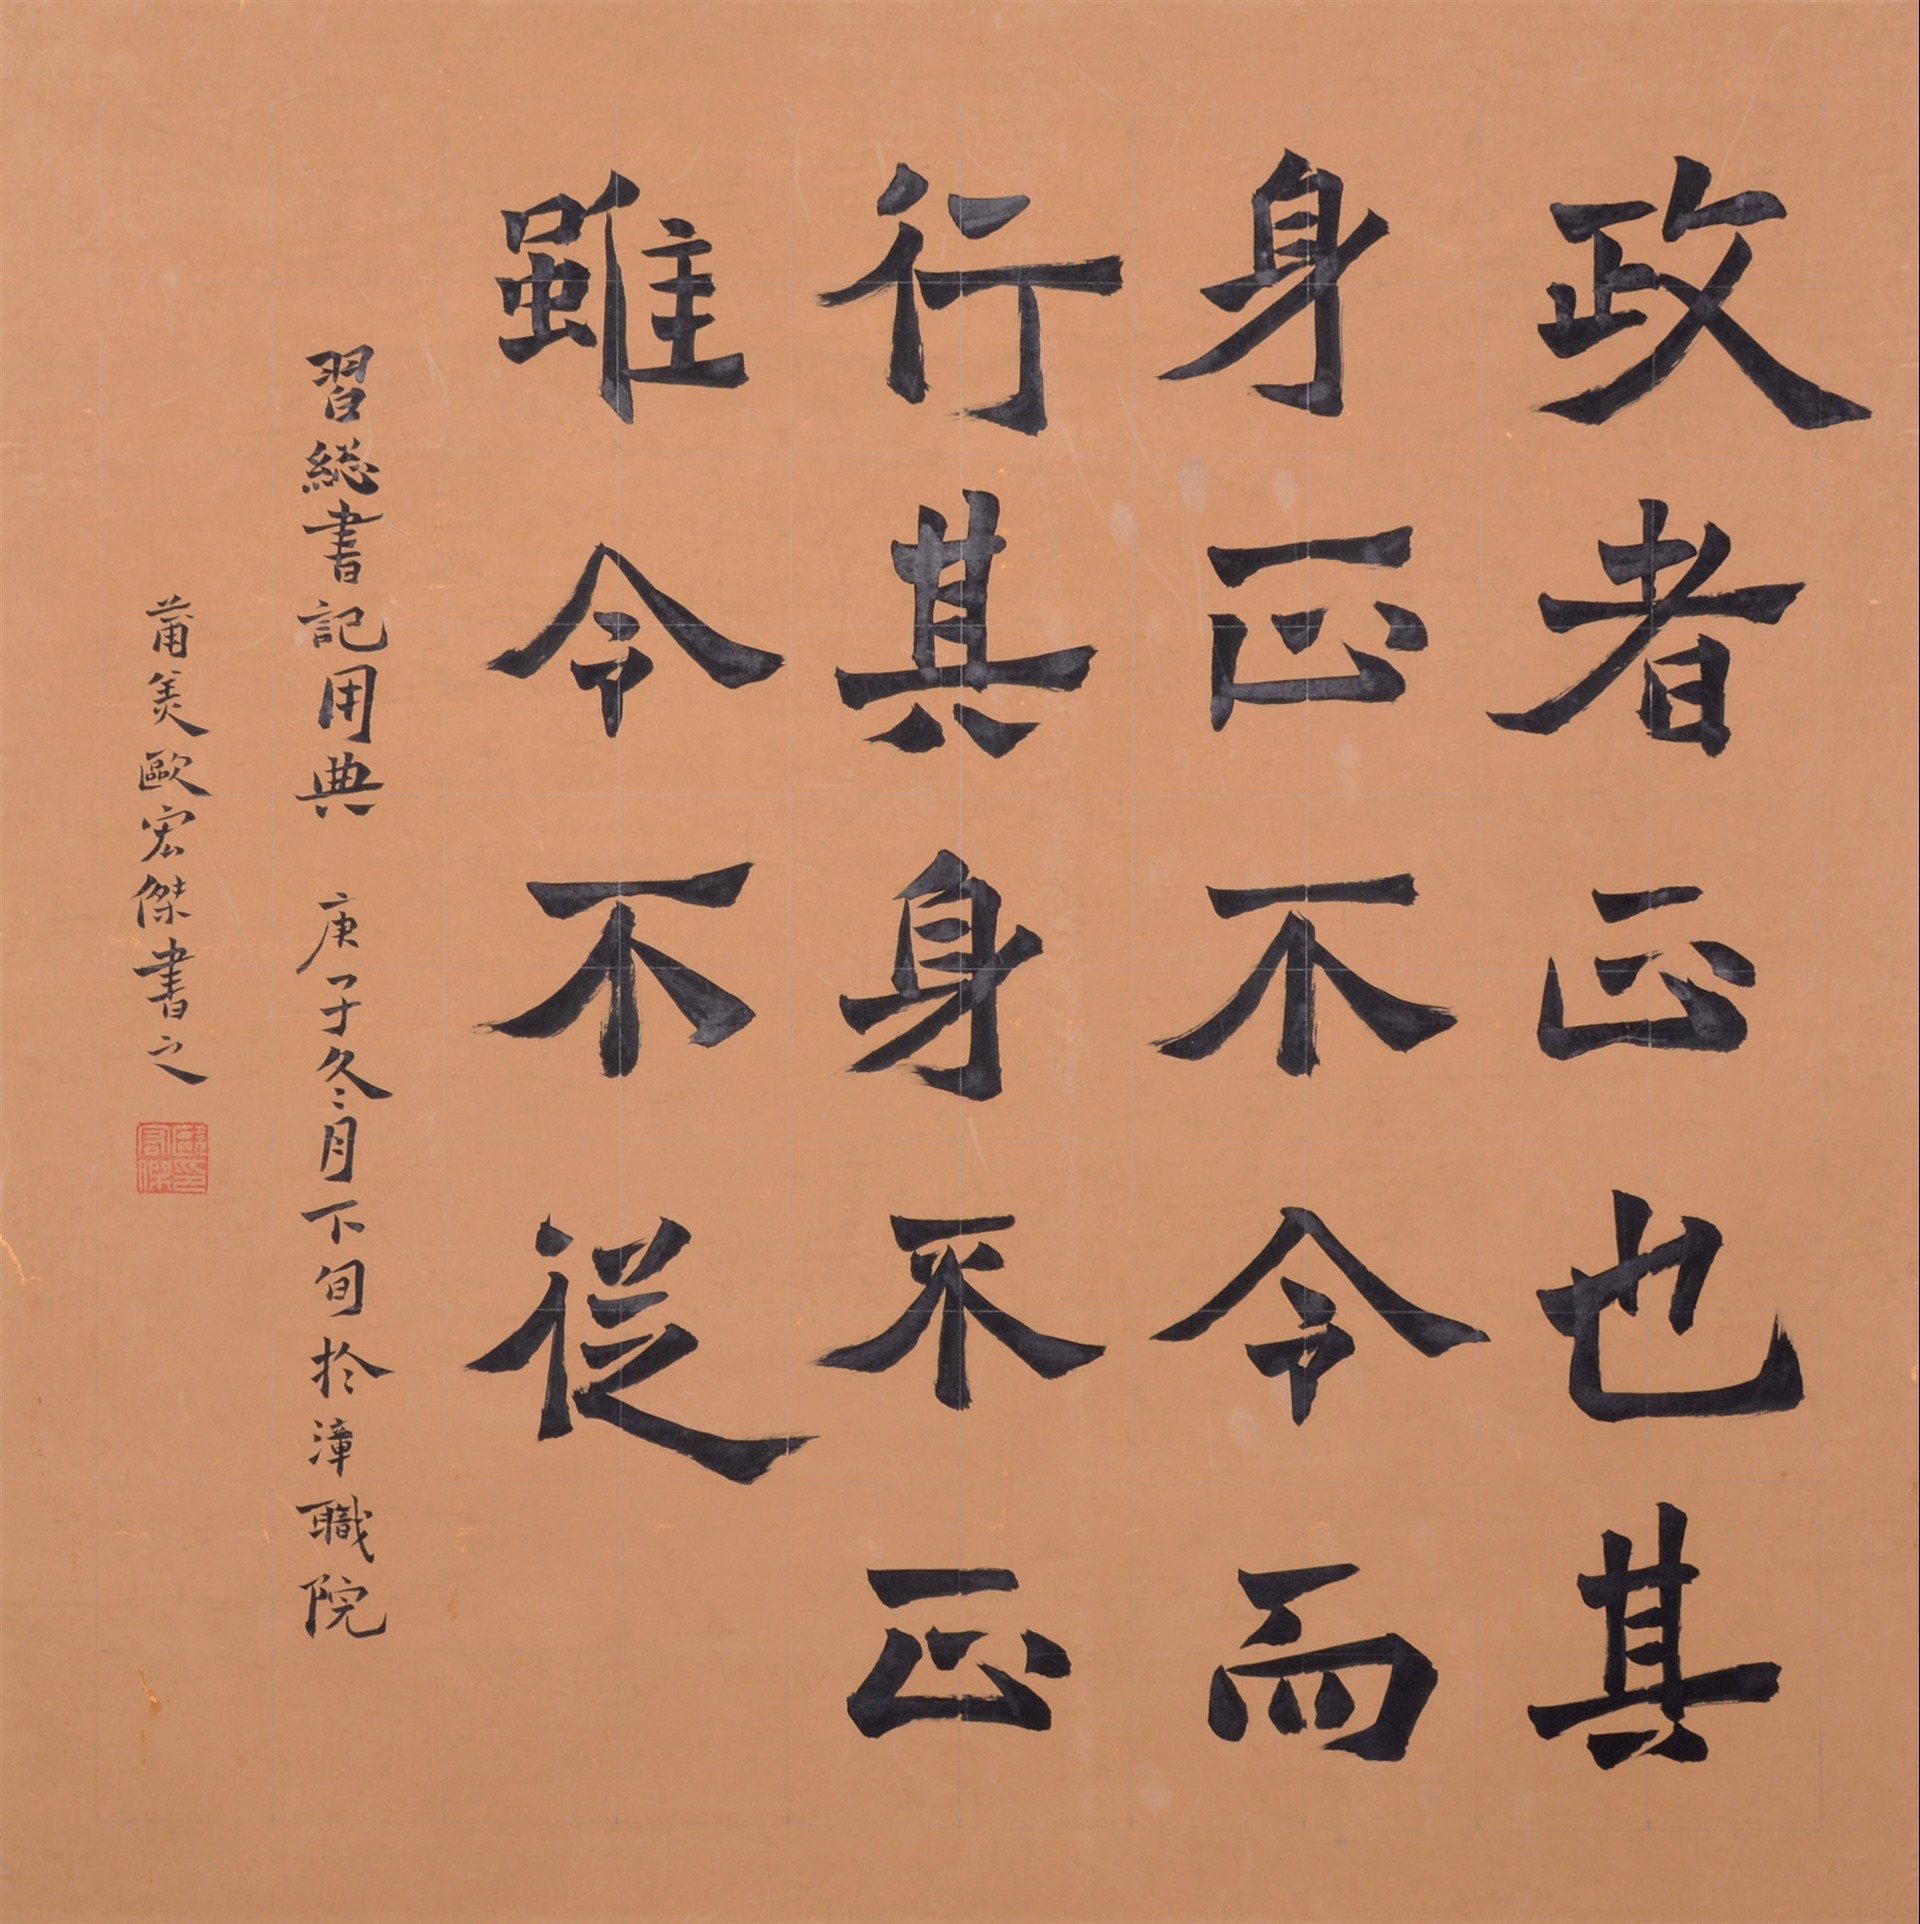 政者正也其
身正不令而
行其身不正
雖令不從
習総書記用典 庚子冬月下旬於漳職院
莆美歐宏傑書之